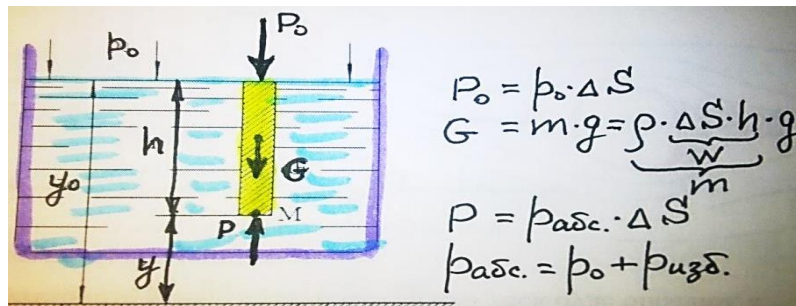 p₀
P₀
h
G
y₀
M
P
y
P₀ = p₀·ΔS
G = m·g = ρ·ΔS·h·g
W
m
P = pабс.·ΔS
pабс. = p₀ + pизб.